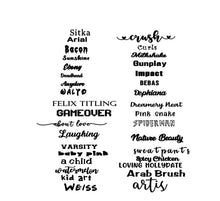 Sitka
Arial
Bacon
Sunshine
Ebony
Deadhead
Angelove
WALTO
FELIX TITLING
GAMEOVER
about love
Laughing
VARSITY
baby pink
a child
watermelon
kid art
WEISS
crush
Curls
Milkshake
Gunplay
Impact
BEBAS
Dephiana
Dreamery Heart
Pink snake
SPIDERMAN
Nature Beauty
sweatpants
Spicy Chicken
LOVING HOLLYDATE
Arab Brush
artis